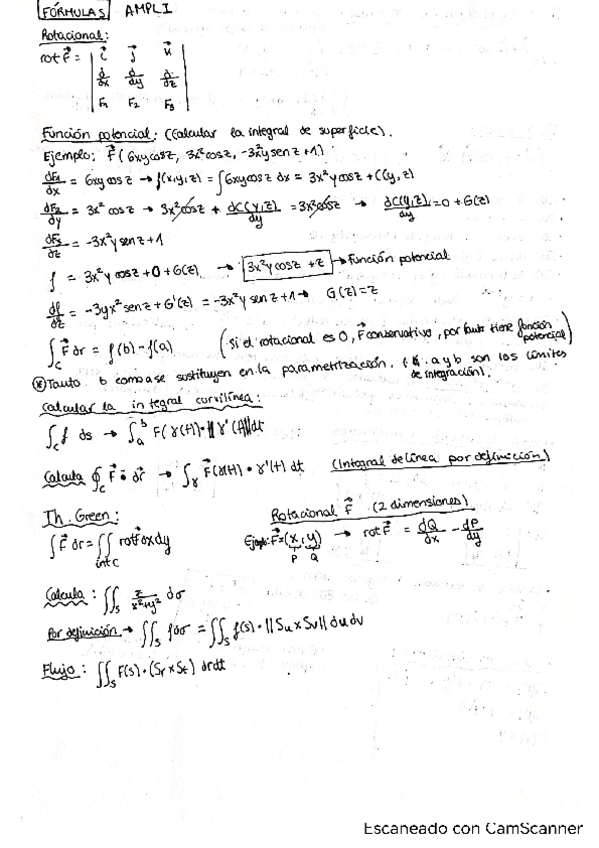 FÓRMULAS AMPLI
Rotacional:
rot F⃗ = | i⃗ j⃗ k⃗ |
| d/dx d/dy d/dz |
| F₁ F₂ F₃ |
Función potencial: (Calcular la integral de superficie).
Ejemplo: F⃗ (6xy cosz, 3x² cosz, -3x²y sen z +1)
dF₁/dx = 6xy cos z → f(x,y,z) = ∫ 6xy cosz dx = 3x²y cosz + C(y,z)
dF₂/dy = 3x² cos z → 3x² cosz + dC(y,z)/dy = 3x² cosz → dC(y,z)/dy = 0 + G(z)
dF₃/dz = -3x²y sen z + 1
f = 3x²y cosz + 0 + G(z) → 3x²y cosz + z → Función potencial
df/dz = -3yx² sen z + G'(z) = -3x²y sen z + 1 → G(z) = z
∫_C F⃗ dr = f(b) - f(a) (Si el rotacional es 0, F⃗ conservativo, por tanto tiene función potencial)
Tanto b como a se sustituyen en la parametrización. ( a y b son los límites de integración).
Calcular la integral curvilínea:
∫_C f ds → ∫_a^b F(γ(t)) · ||γ'(t)|| dt
Calcula ∮_C F⃗ · dr⃗ → ∫_γ F⃗(γ(t)) · γ'(t) dt (Integral de línea por definición)
Th. Green: Rotacional F⃗ (2 dimensiones)
∫ F⃗ dr = ∬_int C rot F⃗ dxdy Ejmplo: F⃗ = (x, y) → rot F⃗ = dQ/dx - dP/dy
P Q
Calcula: ∬_S z/(x²+y²) dσ
Por definición → ∬_S f dσ = ∬_S f(s) · ||Su x Sv|| du dv
Flujo: ∬_S F(s) · (Sr x St) drdt
Escaneado con CamScanner